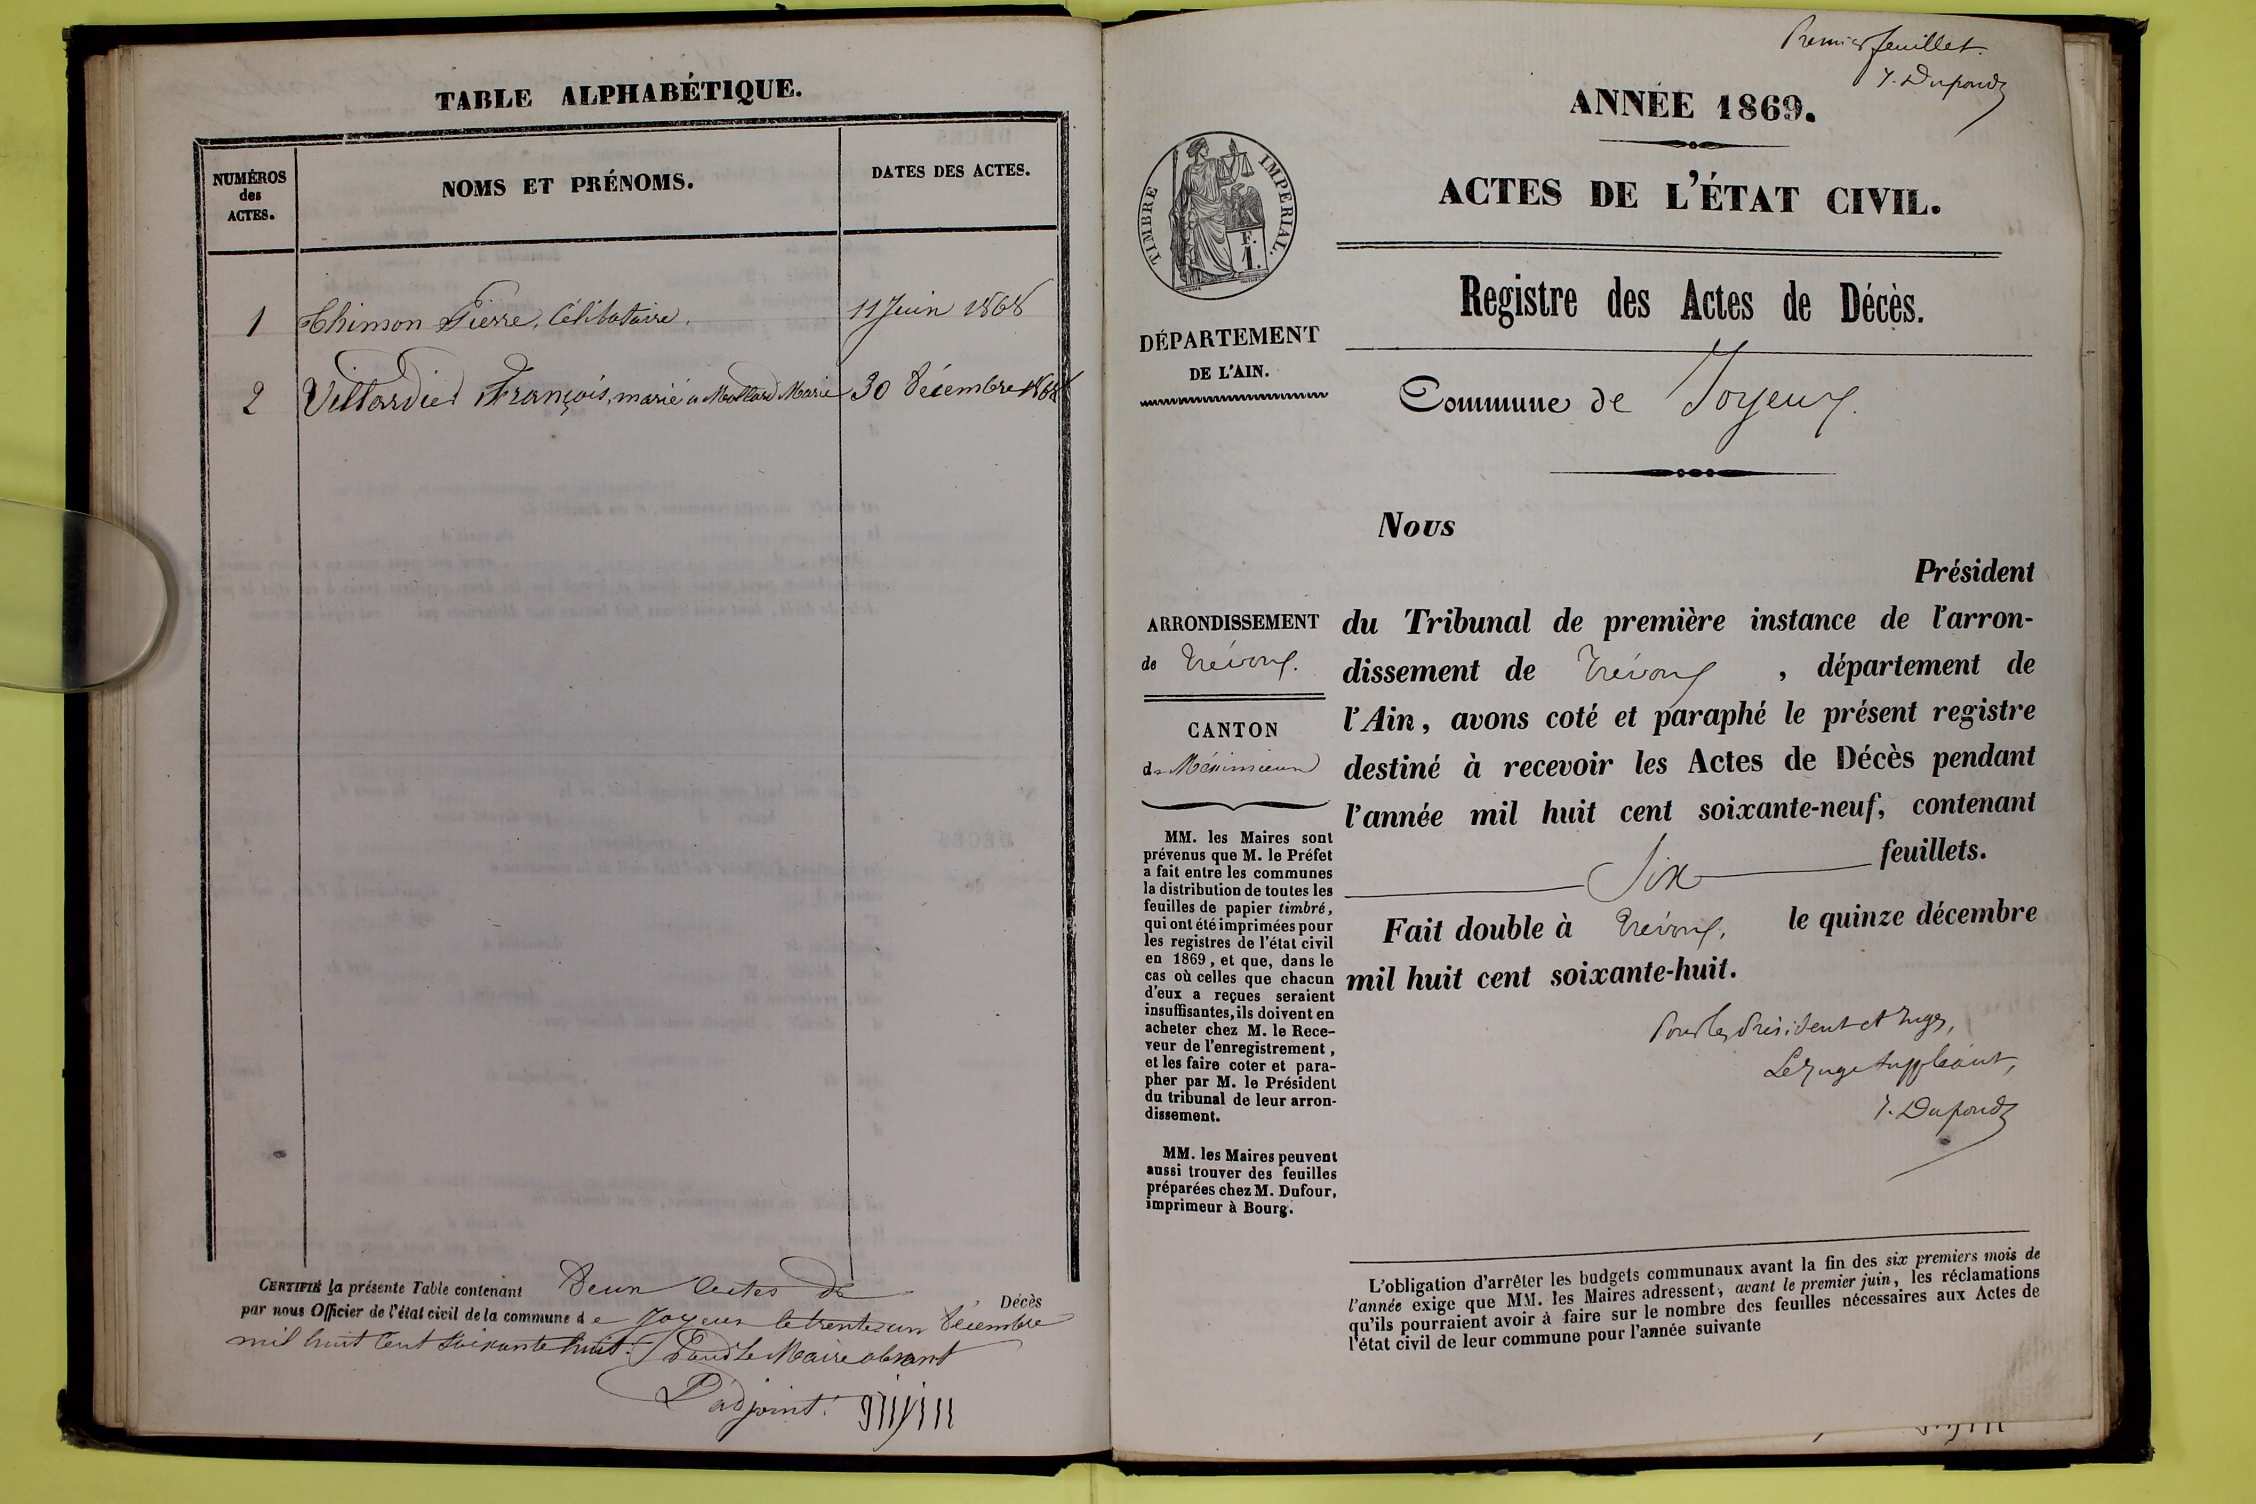 TABLE ALPHABÉTIQUE.
NUMÉROS
des
ACTES.
NOMS ET PRÉNOMS.
DATES DES ACTES.
1 Thimon Pierre, Célibataire. 11 Juin 1868
2 Villardier François, marié a Mollard Marie 30 Décembre 1868
CERTIFIÉ la présente Table contenant Deux Actes de Décès
par nous Officier de l'état civil de la commune de Joyeux le trente un Décembre
mil huit Cent Soixante huit. Pour Le Maire absent
L'adjoint.
Premier feuillet.
J. Dupond
ANNÉE 1869.
ACTES DE L'ÉTAT CIVIL.
TIMBRE IMPÉRIAL.
F.
1.
Registre des Actes de Décès.
DÉPARTEMENT
DE L'AIN.
Commune de Joyeux.
Nous
Président
ARRONDISSEMENT
de Trévoux.
du Tribunal de première instance de l'arron-
dissement de Trévoux, département de
l'Ain, avons coté et paraphé le présent registre
destiné à recevoir les Actes de Décès pendant
l'année mil huit cent soixante-neuf, contenant
Six feuillets.
Fait double à Trévoux, le quinze décembre
mil huit cent soixante-huit.
Pour les Président et Juges,
Le Juge Suppléant,
J. Dupond
CANTON
de Meximieux
MM. les Maires sont
prévenus que M. le Préfet
a fait entre les communes
la distribution de toutes les
feuilles de papier timbré,
qui ont été imprimées pour
les registres de l'état civil
en 1869, et que, dans le
cas où celles que chacun
d'eux a reçues seraient
insuffisantes, ils doivent en
acheter chez M. le Rece-
veur de l'enregistrement,
et les faire coter et para-
pher par M. le Président
du tribunal de leur arron-
dissement.
MM. les Maires peuvent
aussi trouver des feuilles
préparées chez M. Dufour,
imprimeur à Bourg.
L'obligation d'arrêter les budgets communaux avant la fin des six premiers mois de
l'année exige que MM. les Maires adressent, avant le premier juin, les réclamations
qu'ils pourraient avoir à faire sur le nombre des feuilles nécessaires aux Actes de
l'état civil de leur commune pour l'année suivante